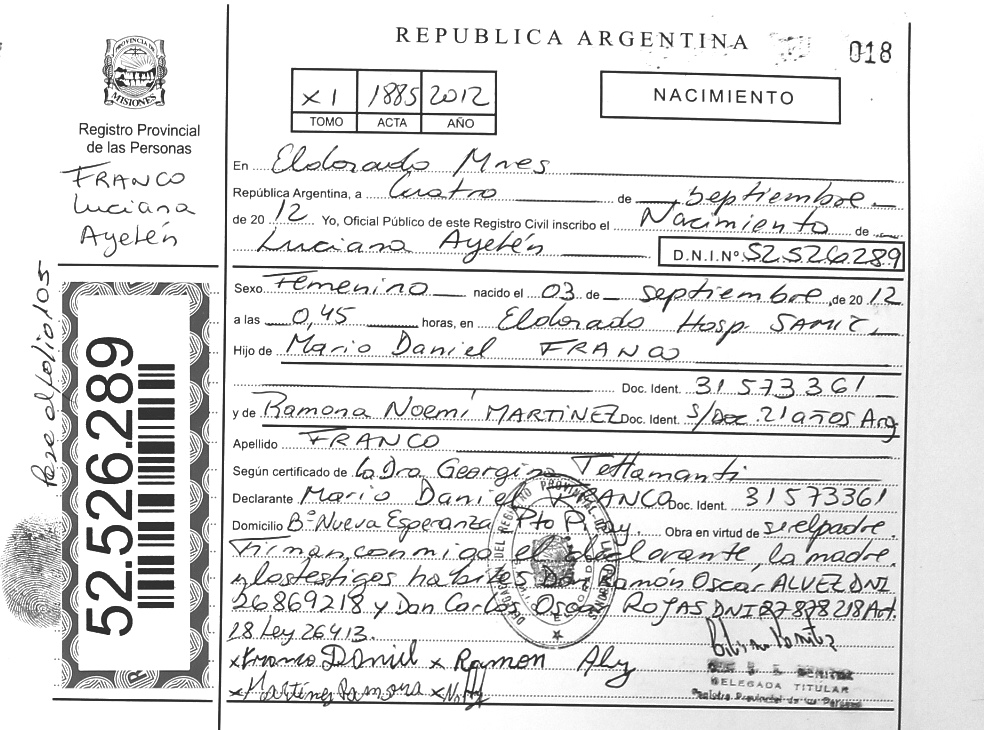 REPUBLICA ARGENTINA
018
PROVINCIA DE
MISIONES
Registro Provincial
de las Personas
FRANCO
Luciana
Ayelén
XI 1885 2012
TOMO ACTA AÑO
NACIMIENTO
En Eldorado Mnes
República Argentina, a Cuatro de septiembre
de 2012 Yo, Oficial Público de este Registro Civil inscribo el Nacimiento de
Luciana Ayelén D.N.I.Nº 52.526.289
Sexo Femenino nacido el 03 de septiembre de 2012
a las 0,45 horas, en Eldorado Hosp. SAMIC,
Hijo de Mario Daniel FRANCO
Doc. Ident. 31573361
y de Ramona Noemí MARTINEZ Doc. Ident. s/Doc. 21 años Arg
Apellido FRANCO
Según certificado de la Dra Georgina Tettamanti
Declarante Mario Daniel FRANCO Doc. Ident. 31573361
Domicilio Bº Nueva Esperanza Pto Piray. Obra en virtud de ser el padre.
Firman conmigo el declarante, la madre
y los testigos habiles Don Ramón Oscar ALVEZ DNI
26869218 y Don Carlos Oscar ROJAS DNI 27878218 Art.
28 Ley 26413.
x Franco Daniel x Ramon
x Martinez Ramona x
DELEGADA TITULAR
Registro Provincial de las Personas
52.526.289
Pase al folio 105